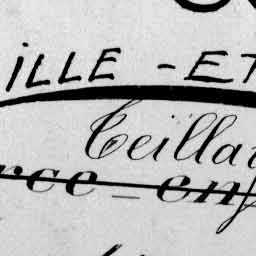 ILLE - ET
Teilla
rce - enf